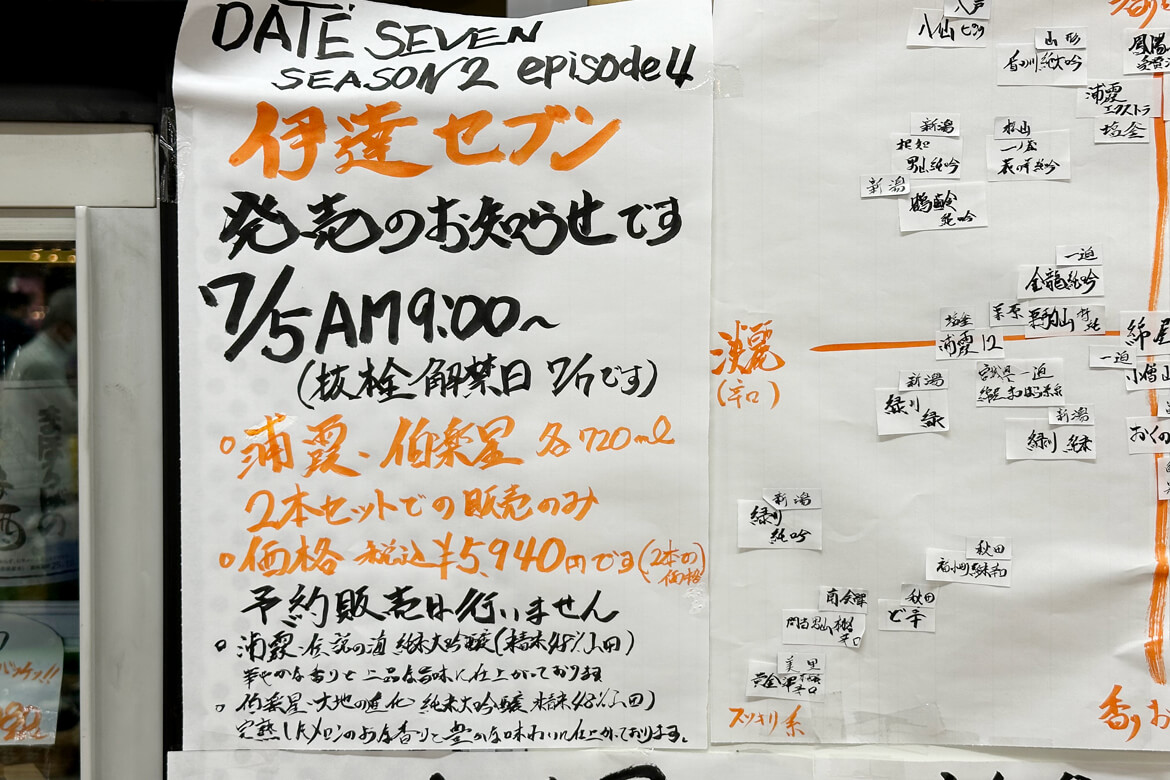 DATE SEVEN
SEASON2 episode4
伊達セブン
発売のお知らせです
7/5 AM9:00～
(抜栓解禁日 7/7です)
○浦霞・伯楽星 各720ml
2本セットでの販売のみ
○価格 税込¥5,940円です(2本の価格)
予約販売は行いません
○浦霞・伝説の海 純米大吟醸(精米48%山田)
華やかな香りと上品な旨味に仕上がっております
○伯楽星・大地の進化 純米大吟醸 精米48%山田)
完熟したメロンのような香りと豊かな味わいに仕上がっております。
淡麗
(辛口)
八戸
八仙ピンク
山形
香の川純大吟
鳳陽
浦霞
エクストラ
塩釜
新潟
根知
男山純吟
松山
一ノ蔵
新潟
鶴齢
純吟
一迫
金龍純吟
塩釜
浦霞12
栗原
綿屋
宮城県一迫
一迫
小僧山
新潟
緑川 緑
新潟
緑川 純米
おくの
新潟
緑川
純吟
秋田
秋田
ど辛
南会津
美里
黄金澤
スッキリ系
香り